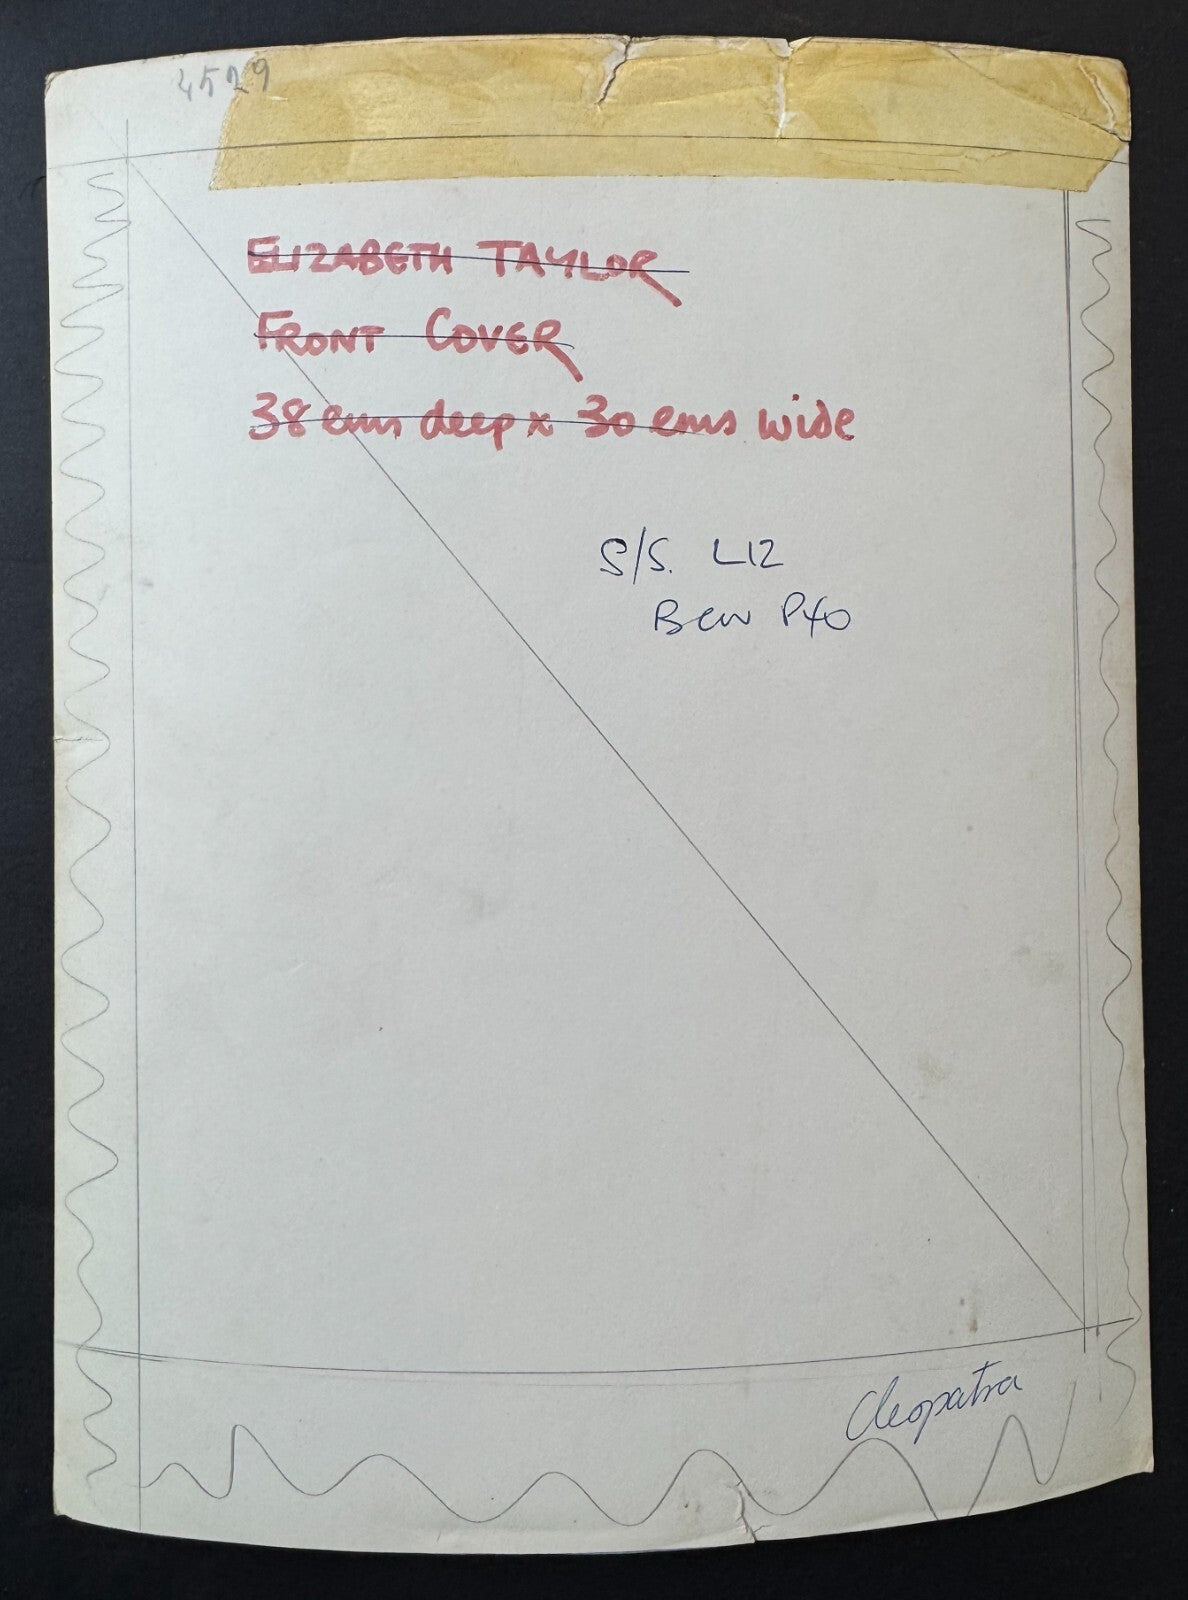 4529
ELIZABETH TAYLOR
FRONT COVER
38 ems deep x 30 ems wide
S/S. LIZ
P40
Cleopatra